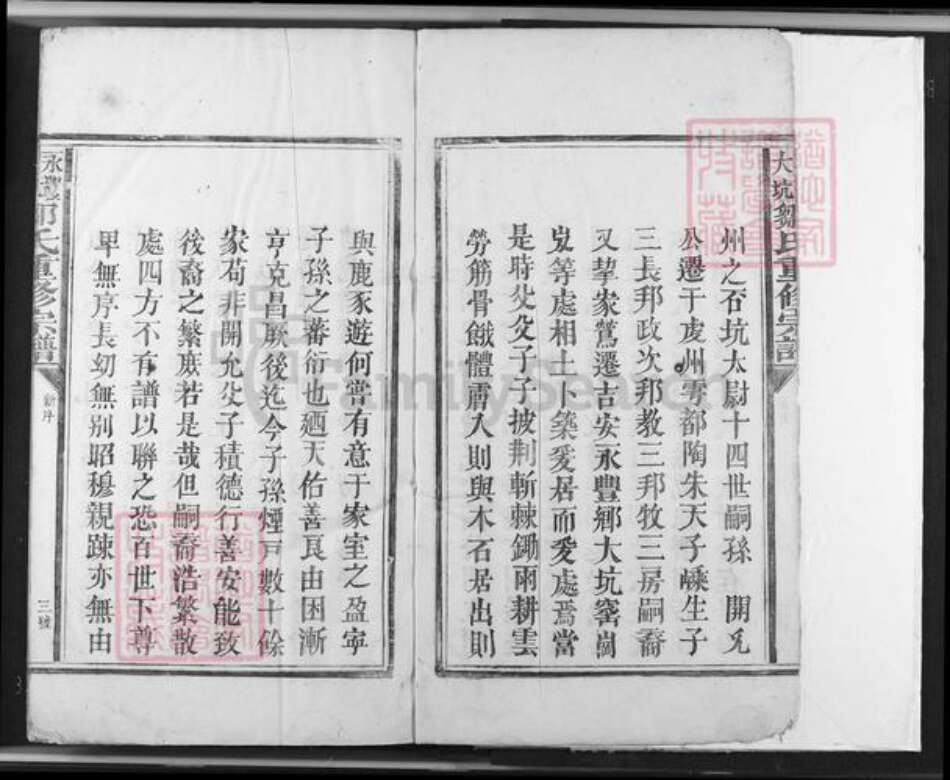 大坑鄒氏重修宗譜
州之石坑太尉十四世嗣孫 開允
公遷于虔州雩都陶朱天子嵊生子
三長邦政次邦教三邦牧三房嗣裔
又挈家鴛遷吉安永豐鄉大坑窰崗
等處相土卜築爰居而爰處焉當
是時父父子子披荆斬棘鋤雨耕雲
勞筋骨餓體膚入則與木石居出則
與鹿豕遊何嘗有意于家室之盈寧
子孫之蕃衍也廼天佑善良由困漸
亨克昌厥後迄今子孫煙戸數十餘
家苟非開允父子積德行善安能致
後裔之繁庶若是哉但嗣裔浩繁散
處四方不有譜以聯之恐百世下尊
卑無序長幼無别昭穆親踈亦無由
永豐鄒氏重修宗譜
新序
三號
FamilySearch